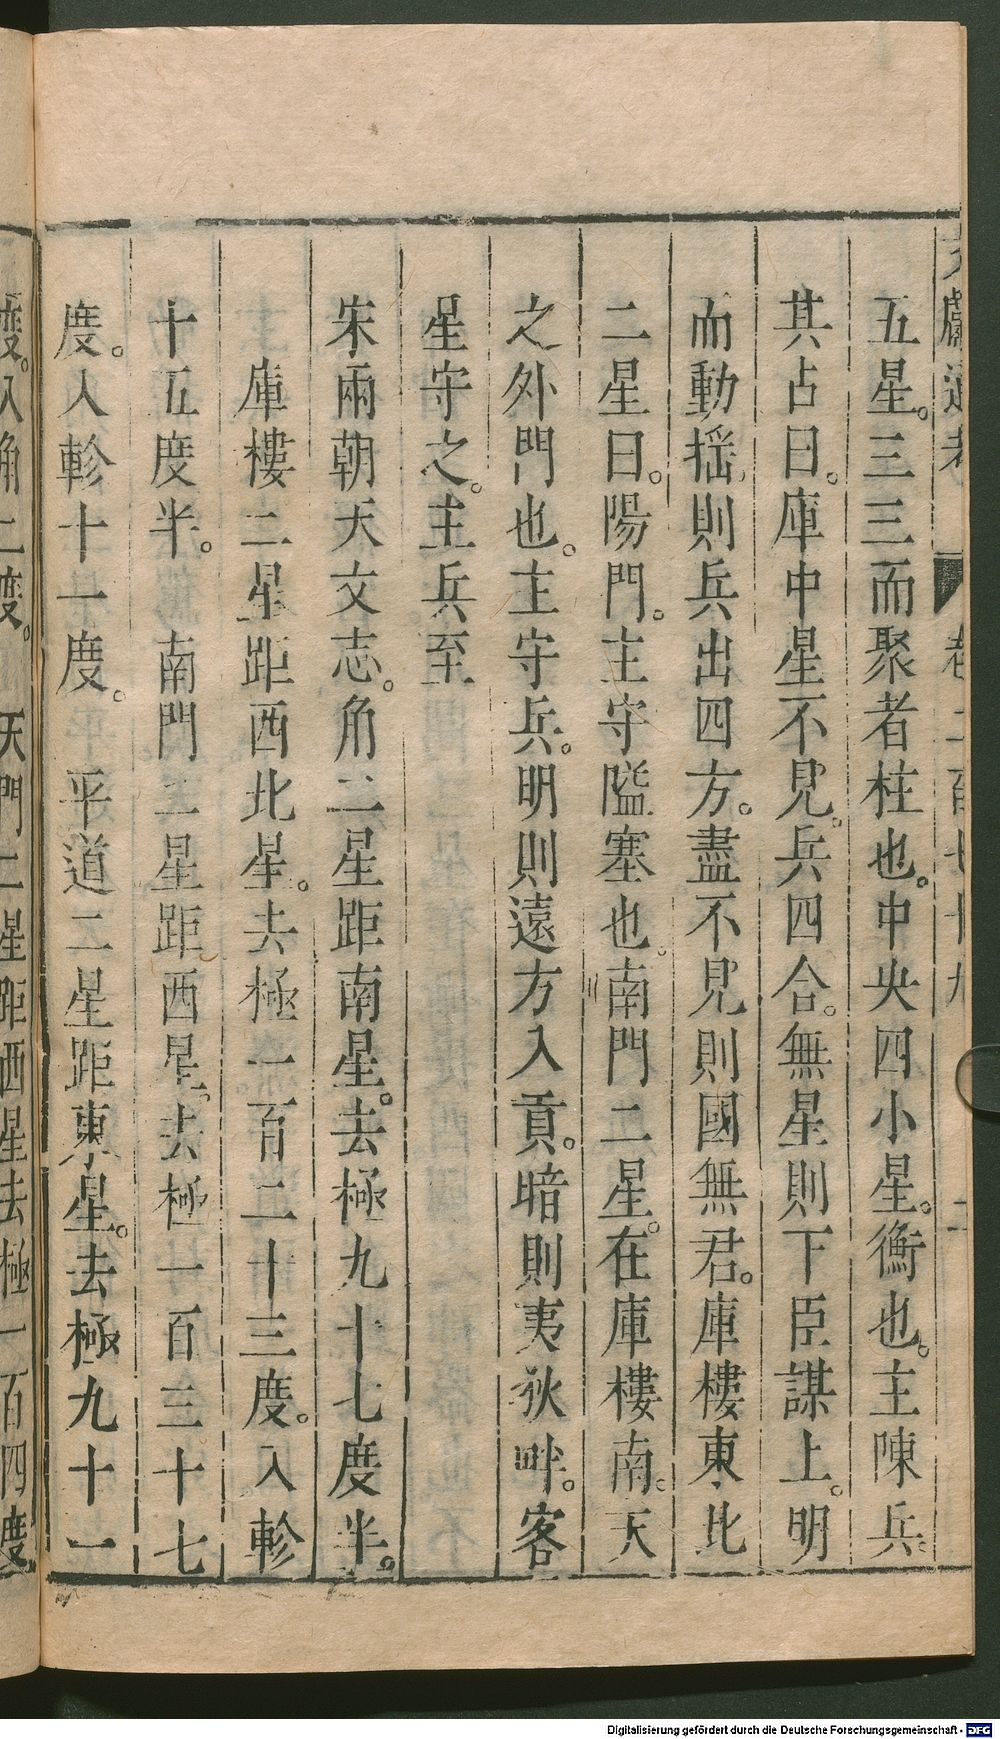 文獻通考 卷二百七十九 二
五星。三三而聚者柱也。中央四小星。衡也。主陳兵。
其占曰。庫中星不見。兵四合。無星則下臣謀上。明
而動揺則兵出四方。盡不見則國無君。庫樓東北
二星曰。陽門。主守隘塞也。南門二星。在庫樓南。天
之外門也。主守兵。明則遠方入貢。暗則夷狄畔。客
星守之。主兵至
宋兩朝天文志。角二星距南星。去極九十七度半。
庫樓二星距西北星。去極一百二十三度。入軫
十五度半。南門二星距西星。去極一百三十七
度。入軫十一度。平道二星距東星。去極九十一
度。入角二度。天門二星距西星去極一百四度
Digitalisierung gefördert durch die Deutsche Forschungsgemeinschaft - DFG